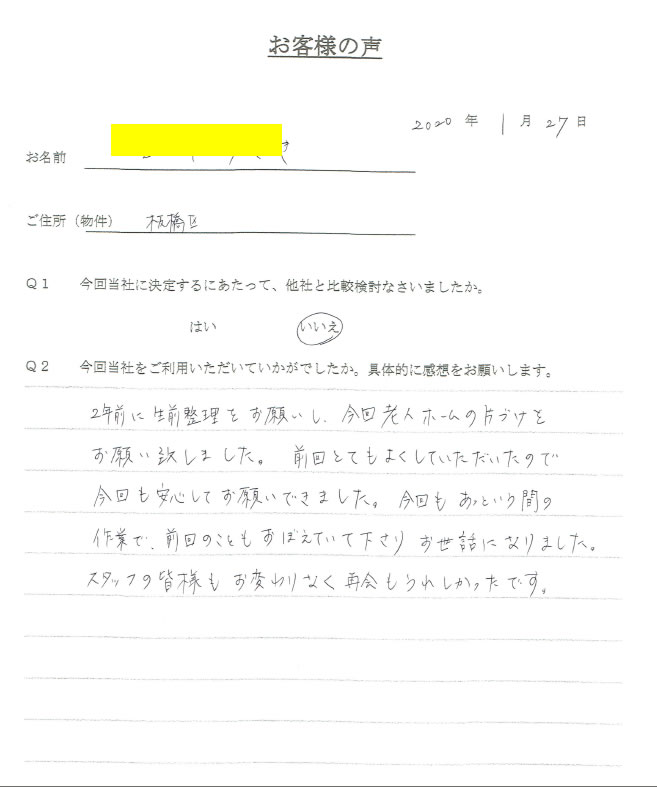 お客様の声
2020 年 1 月 27 日
お名前
ご住所（物件） 板橋区
Q1 今回当社に決定するにあたって、他社と比較検討なさいましたか。
はい いいえ
Q2 今回当社をご利用いただいていかがでしたか。具体的に感想をお願いします。
2年前に生前整理をお願いし、今回老人ホームの片づけを
お願い致しました。 前回とてもよくしていただいたので
今回も安心してお願いできました。 今回もあっという間の
作業で、前回のこともおぼえていて下さりお世話になりました。
スタッフの皆様もお変わりなく再会もうれしかったです。